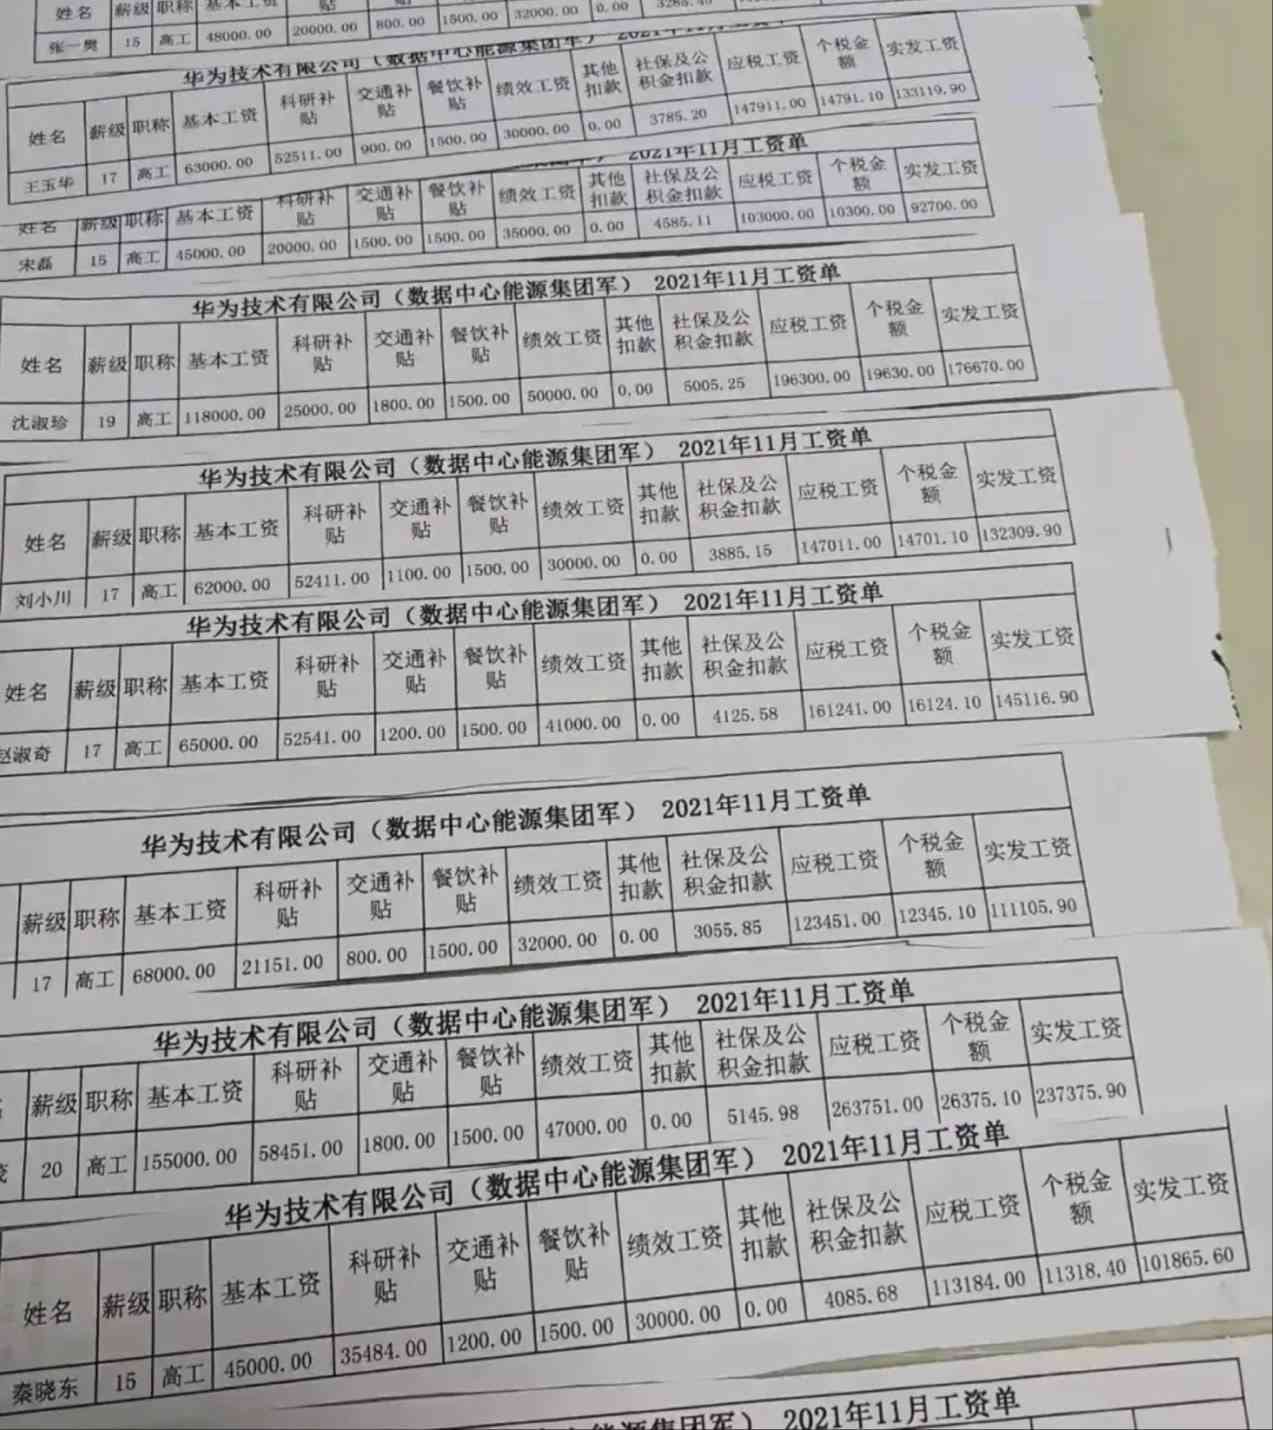 姓名 薪级 职称 基本工资 贴 贴
张一奥 15 高工 48000.00 20000.00 800.00 1500.00 32000.00 0.00 3285.40
华为技术有限公司（数据中心能源集团军） 2021年11月工资单
姓名 薪级 职称 基本工资 科研补贴 交通补贴 餐饮补贴 绩效工资 其他扣款 社保及公积金扣款 应税工资 个税金额 实发工资
王玉华 17 高工 63000.00 52511.00 900.00 1500.00 30000.00 0.00 3785.20 147911.00 14791.10 133119.90
集团军） 2021年11月工资单
姓名 薪级 职称 基本工资 科研补贴 交通补贴 餐饮补贴 绩效工资 其他扣款 社保及公积金扣款 应税工资 个税金额 实发工资
宋磊 15 高工 45000.00 20000.00 1500.00 1500.00 35000.00 0.00 4585.11 103000.00 10300.00 92700.00
华为技术有限公司（数据中心能源集团军） 2021年11月工资单
姓名 薪级 职称 基本工资 科研补贴 交通补贴 餐饮补贴 绩效工资 其他扣款 社保及公积金扣款 应税工资 个税金额 实发工资
沈淑珍 19 高工 118000.00 25000.00 1800.00 1500.00 50000.00 0.00 5005.25 196300.00 19630.00 176670.00
华为技术有限公司（数据中心能源集团军） 2021年11月工资单
姓名 薪级 职称 基本工资 科研补贴 交通补贴 餐饮补贴 绩效工资 其他扣款 社保及公积金扣款 应税工资 个税金额 实发工资
刘小川 17 高工 62000.00 52411.00 1100.00 1500.00 30000.00 0.00 3885.15 147011.00 14701.10 132309.90
华为技术有限公司（数据中心能源集团军） 2021年11月工资单
姓名 薪级 职称 基本工资 科研补贴 交通补贴 餐饮补贴 绩效工资 其他扣款 社保及公积金扣款 应税工资 个税金额 实发工资
赵淑奇 17 高工 65000.00 52541.00 1200.00 1500.00 41000.00 0.00 4125.58 161241.00 16124.10 145116.90
华为技术有限公司（数据中心能源集团军） 2021年11月工资单
薪级 职称 基本工资 科研补贴 交通补贴 餐饮补贴 绩效工资 其他扣款 社保及公积金扣款 应税工资 个税金额 实发工资
17 高工 68000.00 21151.00 800.00 1500.00 32000.00 0.00 3055.85 123451.00 12345.10 111105.90
华为技术有限公司（数据中心能源集团军） 2021年11月工资单
名 薪级 职称 基本工资 科研补贴 交通补贴 餐饮补贴 绩效工资 其他扣款 社保及公积金扣款 应税工资 个税金额 实发工资
20 高工 155000.00 58451.00 1800.00 1500.00 47000.00 0.00 5145.98 263751.00 26375.10 237375.90
华为技术有限公司（数据中心能源集团军） 2021年11月工资单
姓名 薪级 职称 基本工资 科研补贴 交通补贴 餐饮补贴 绩效工资 其他扣款 社保及公积金扣款 应税工资 个税金额 实发工资
秦晓东 15 高工 45000.00 35484.00 1200.00 1500.00 30000.00 0.00 4085.68 113184.00 11318.40 101865.60
能源集团军） 2021年11月工资单